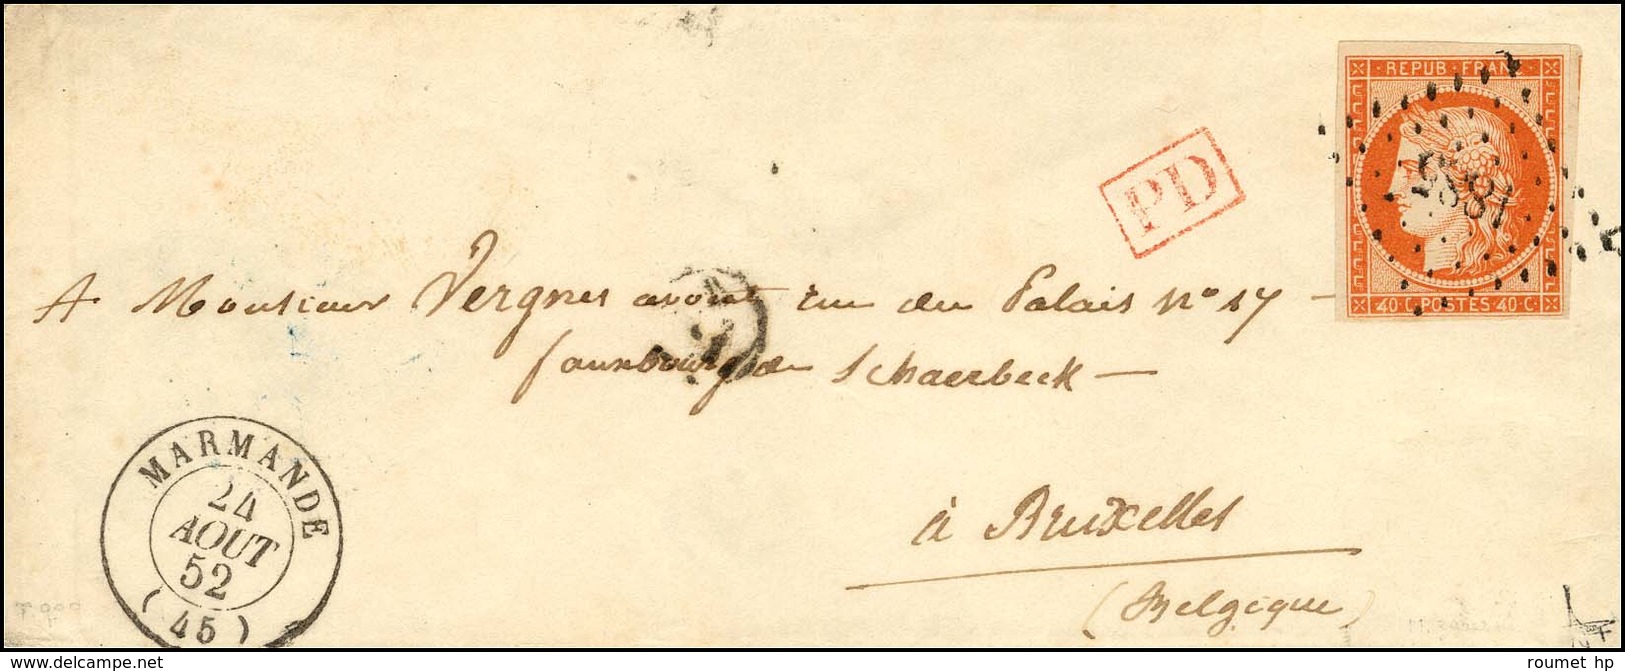 REPUB · FRANC
PD
A Monsieur Vergnes avoué rue du Palais N° 17 —
faux bourg de Schaerbeek —
40 C. POSTES 40 C
MARMANDE
24
AOUT
52
(45)
à Bruxelles
(Belgique)
www.delcampe.net
roumet hp